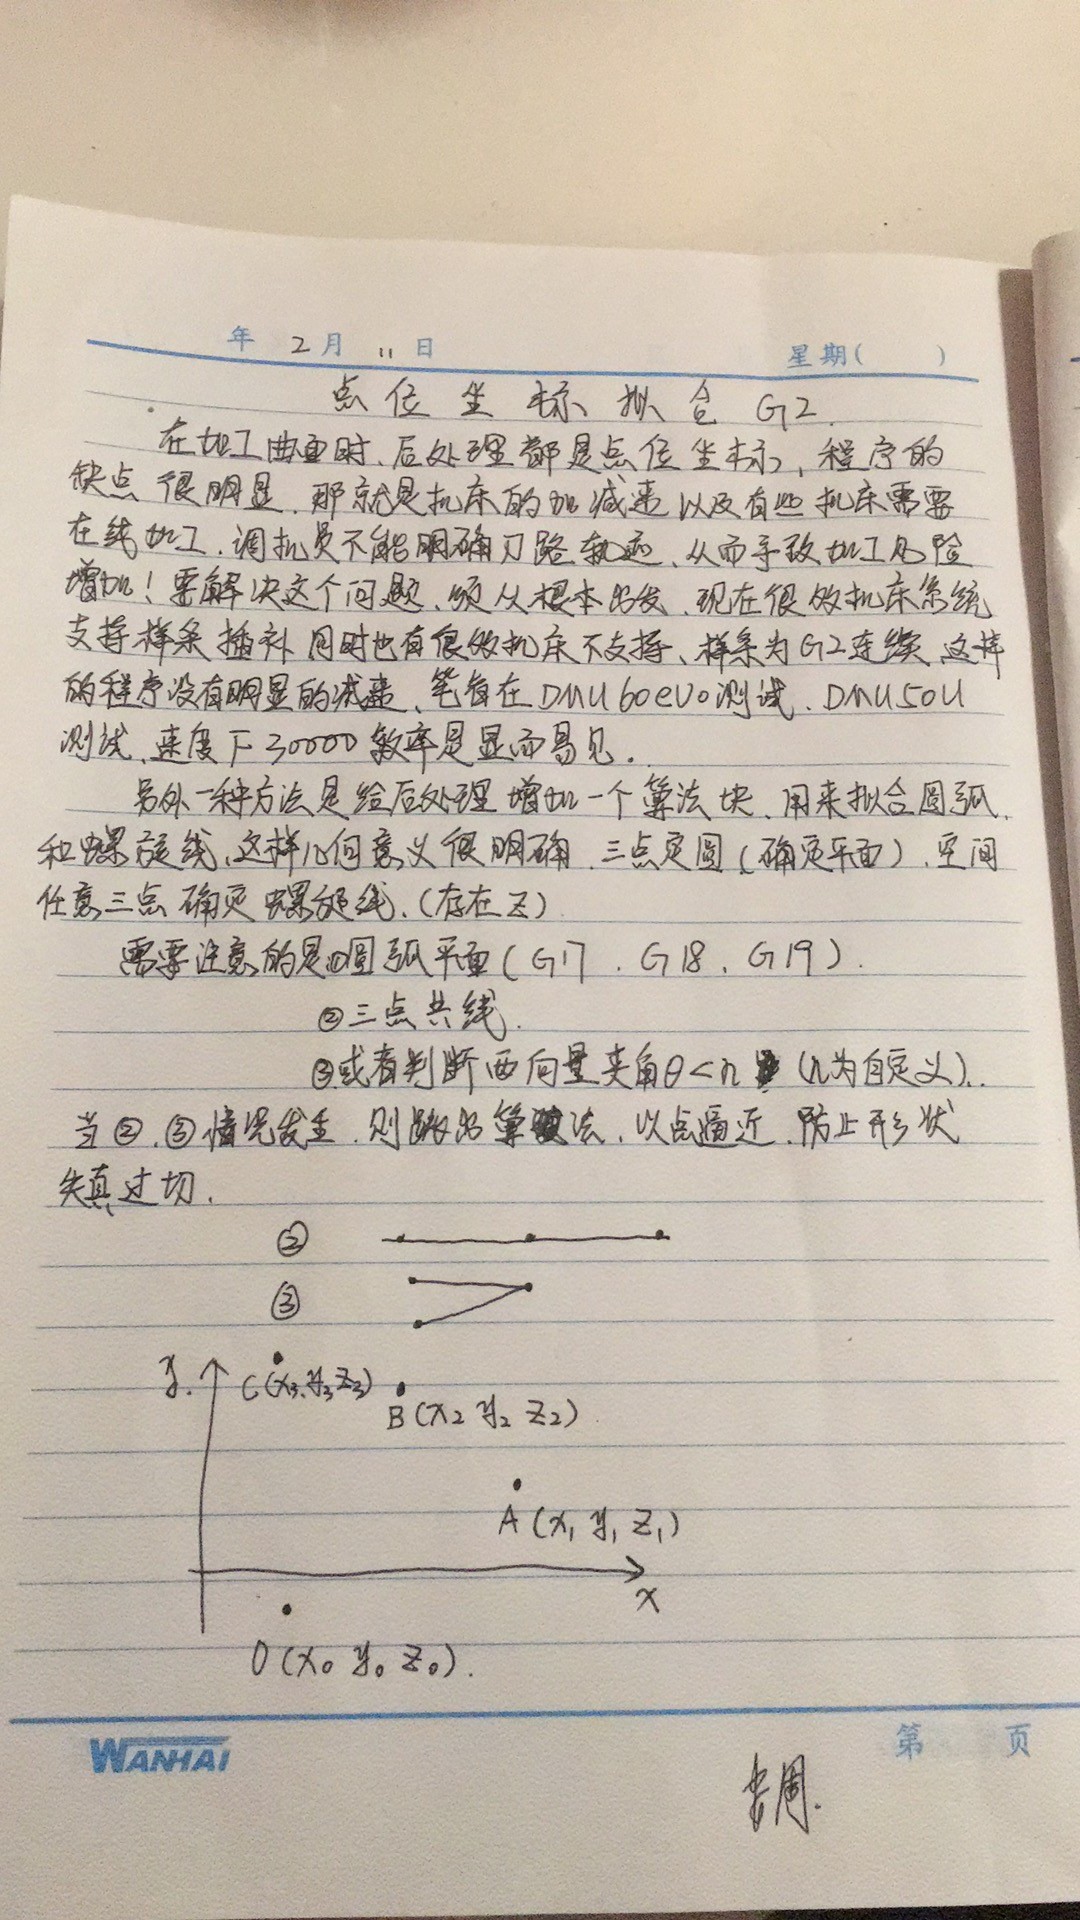 年 2月 11日 星期( )
点位坐标拟合 G2.
在加工曲面时、后处理都是点位坐标，程序的
缺点很明显、那就是机床的加减速以及有些机床需要
在线加工、调机员不能明确刀路轨迹、从而导致加工风险
增加！要解决这个问题、须从根本出发、现在很多机床系统
支持样条插补 同时也有很多机床不支持、样条为G2连续 这样
的程序没有明显的减速、笔者在DMU60evo测试、DMU50U
测试、速度F30000 效率是显而易见.
另外一种方法是给后处理增加一个算法块、用来拟合圆弧
和螺旋线、这样几何意义很明确 三点定圆(确定平面)、空间
任意三点确定螺旋线、(存在Z)
需要注意的是①圆弧平面(G17、G18、G19).
②三点共线.
③或者判断两向量夹角θ<n (n为自定义).
当②、③情况发生、则跳出算法、以点逼近、防止形状
失真过切.
②
③
y.
C(x₃.y₃z₃)
B(x₂ y₂ z₂)
A(x₁ y₁ z₁)
x
O(x₀ y₀ z₀).
WANHAI
第 页
周.